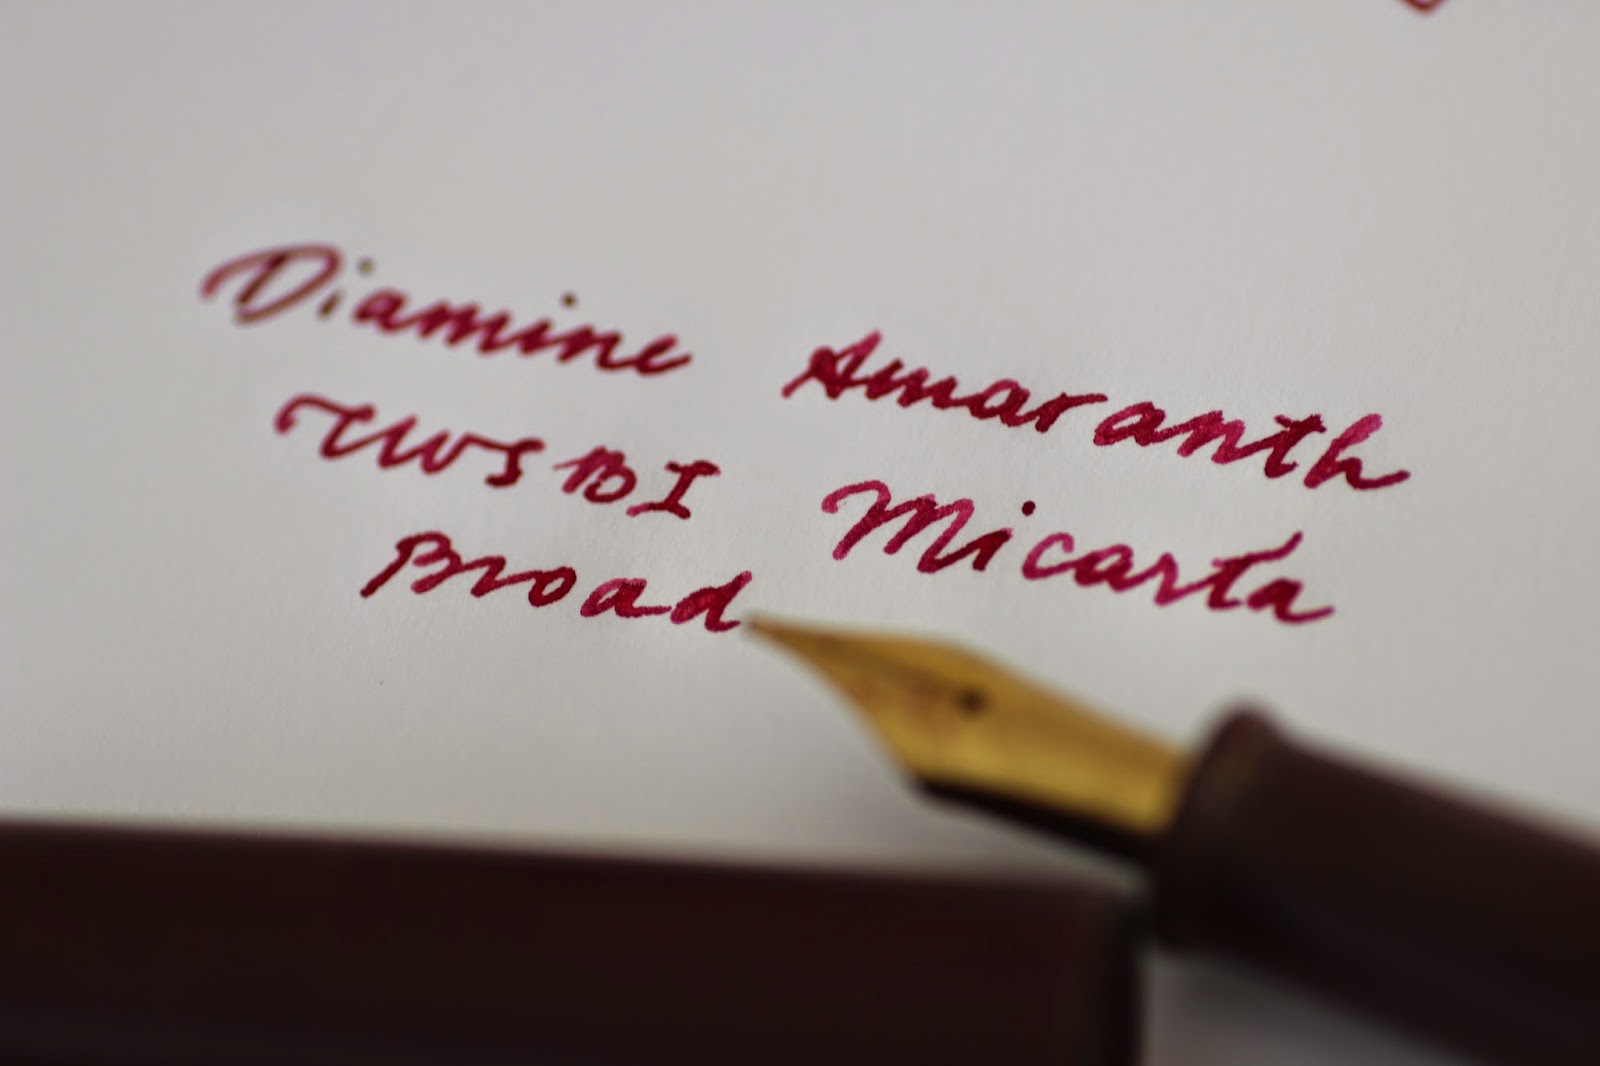 Diamine Amaranth
TWSBI Micarta
Broad